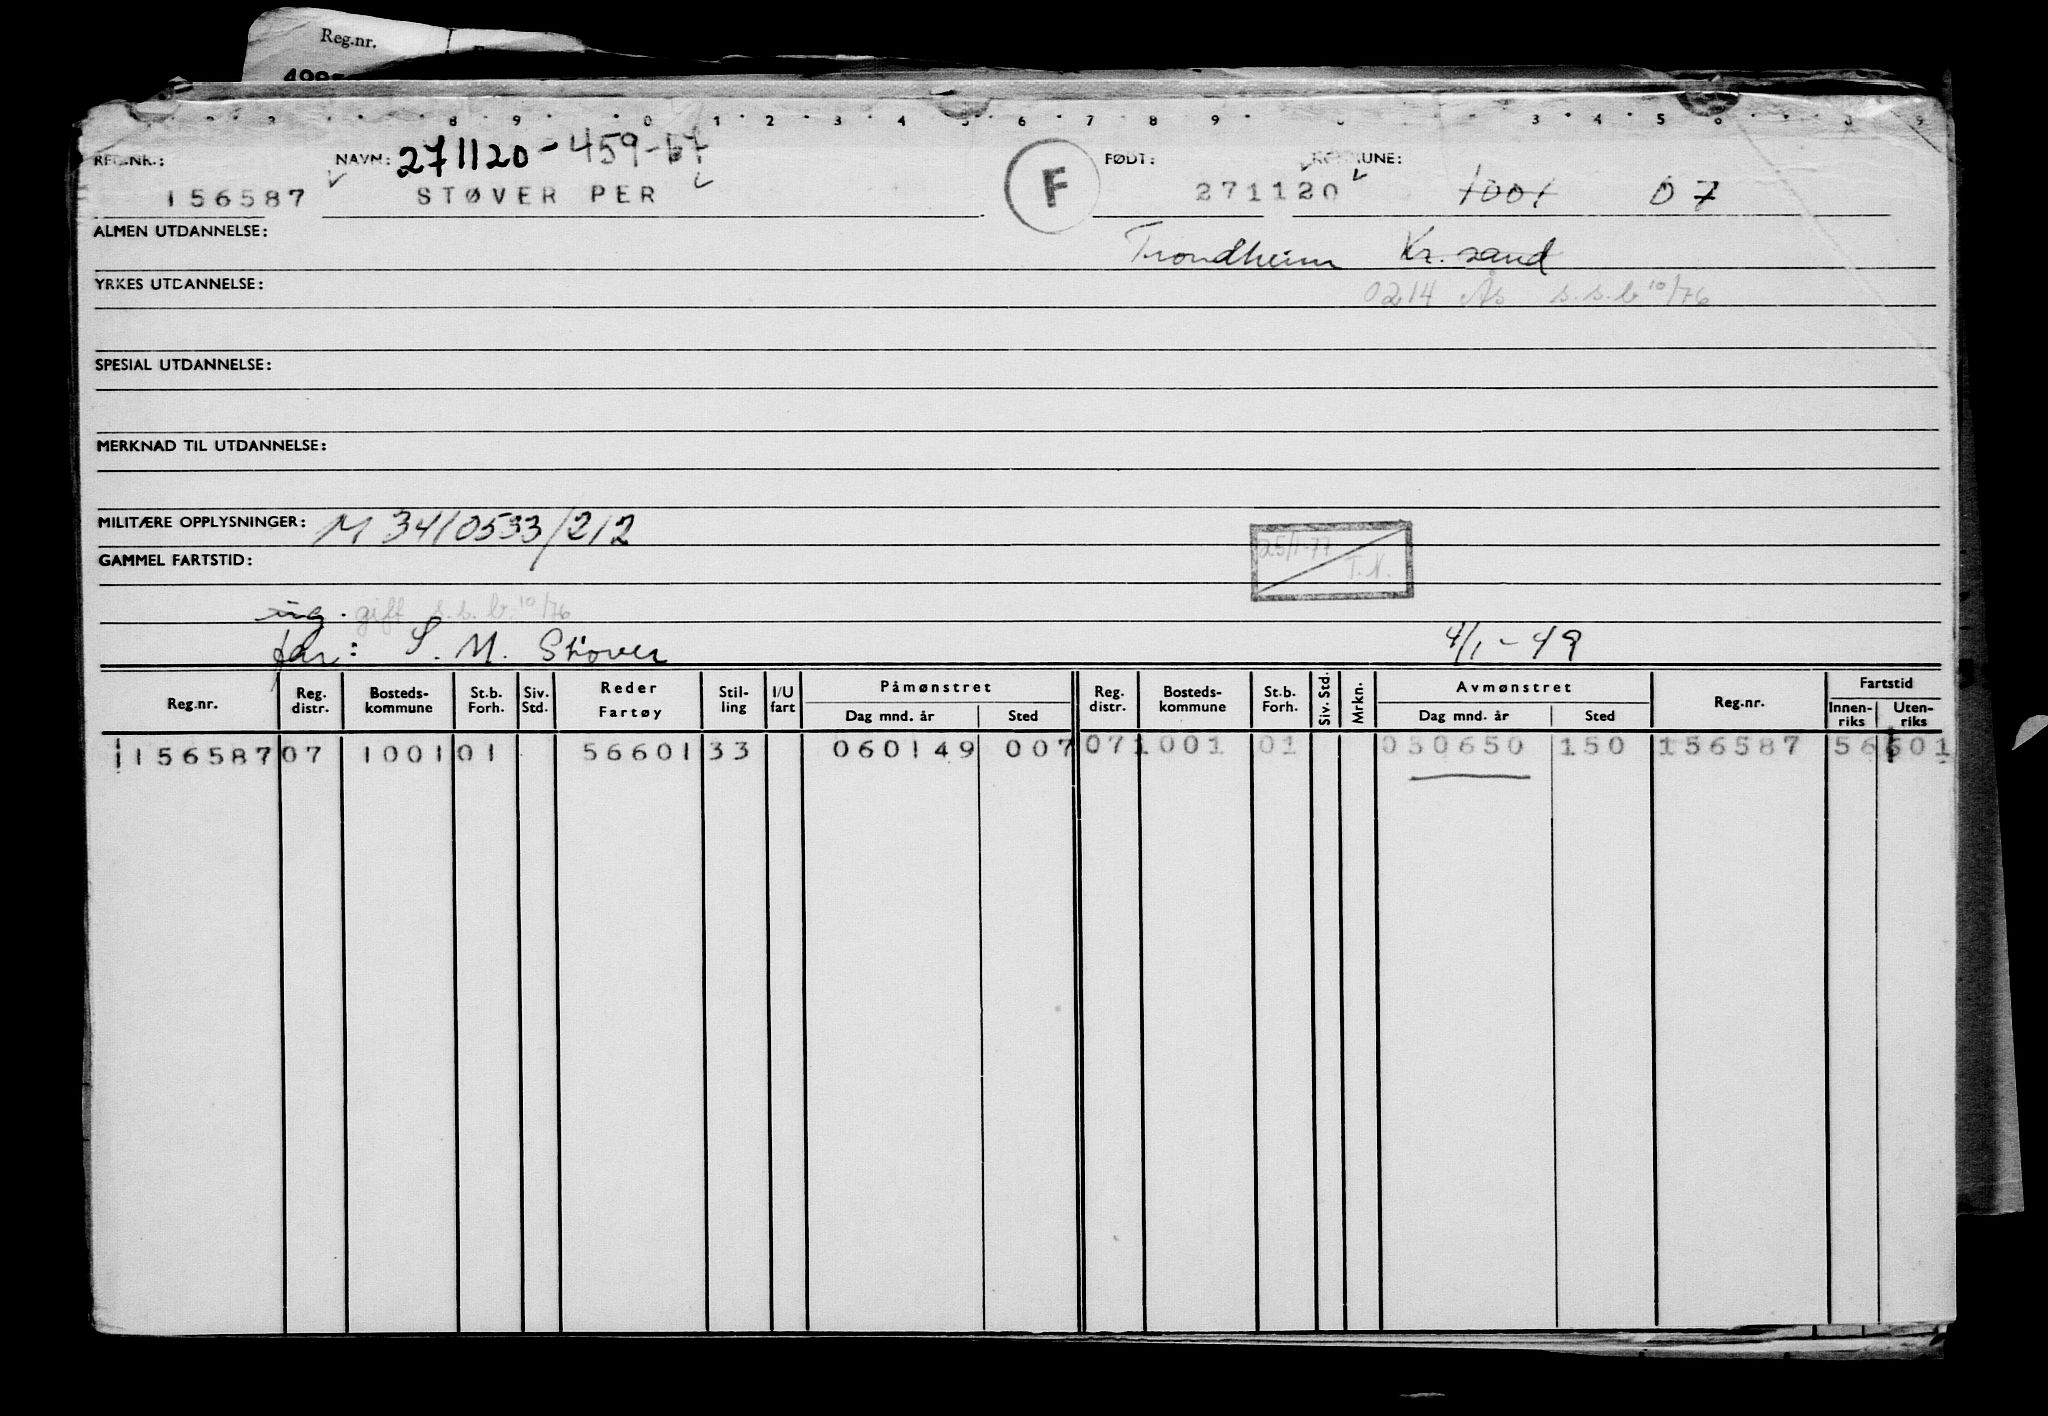 Reg.nr.
8 9 0 1 2 3 4 5 6 7 8 9 3 4 5 6 8 9
REG.NR.: NAVN: 271120-459-67 F FØDT: KOMMUNE:
156587 STØVER PER 271120 1001 07
ALMEN UTDANNELSE: Trondheim Kr.sand
YRKES UTDANNELSE: 0214 Ås s.s.b 10/76
SPESIAL UTDANNELSE:
MERKNAD TIL UTDANNELSE:
MILITÆRE OPPLYSNINGER: M 34/0533/212
GAMMEL FARTSTID: 25/1-77 T.N.
ug. gift s.s.b. 10/76
far: S. M. Støver 4/1-49
Reg.nr. Reg. distr. Bosteds-kommune St.b. Forh. Siv. Std. Reder Fartøy Stil-ling I/U fart Påmønstret Dag mnd. år Sted Reg. distr. Bosteds-kommune St.b. Forh. Siv. Std. Mrkn. Avmønstret Dag mnd. år Sted Reg.nr. Fartstid Innen-riks Uten-riks
156587 07 1001 01 56601 33 060149 007 07 1001 01 050650 150 156587 56601